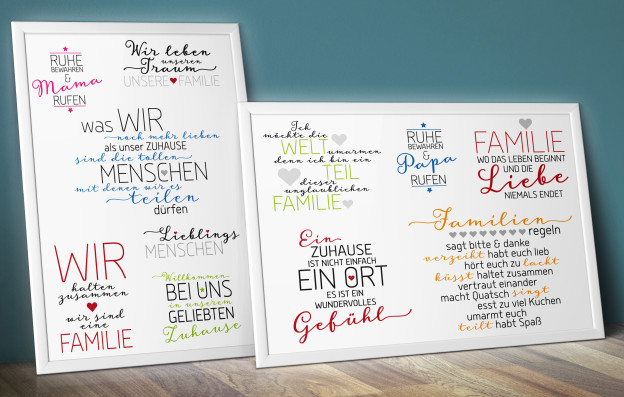 RUHE
BEWAHREN
&
Mama
RUFEN
Wir leben
unseren
Traum
UNSERE FAMILIE
was WIR
noch mehr lieben
als unser ZUHAUSE
sind die tollen
MENSCHEN
mit denen wir es
teilen
dürfen
Lieblings
MENSCHEN
WIR
halten
zusammen
wir sind
eine
FAMILIE
Willkommen
BEI UNS
in unserem
GELIEBTEN
Zuhause
Ich
möchte die
WELT
umarmen
denn ich bin ein
TEIL
dieser
unglaublichen
FAMILIE
RUHE
BEWAHREN
&
Papa
RUFEN
FAMILIE
WO DAS LEBEN BEGINNT
UND DIE
Liebe
NIEMALS ENDET
Ein
ZUHAUSE
IST NICHT EINFACH
EIN ORT
ES IST EIN
WUNDERVOLLES
Gefühl
Familien
regeln
sagt bitte & danke
verzeiht habt euch lieb
hört euch zu lacht
küsst haltet zusammen
vertraut einander
macht Quatsch singt
esst zu viel Kuchen
umarmt euch
teilt habt Spaß